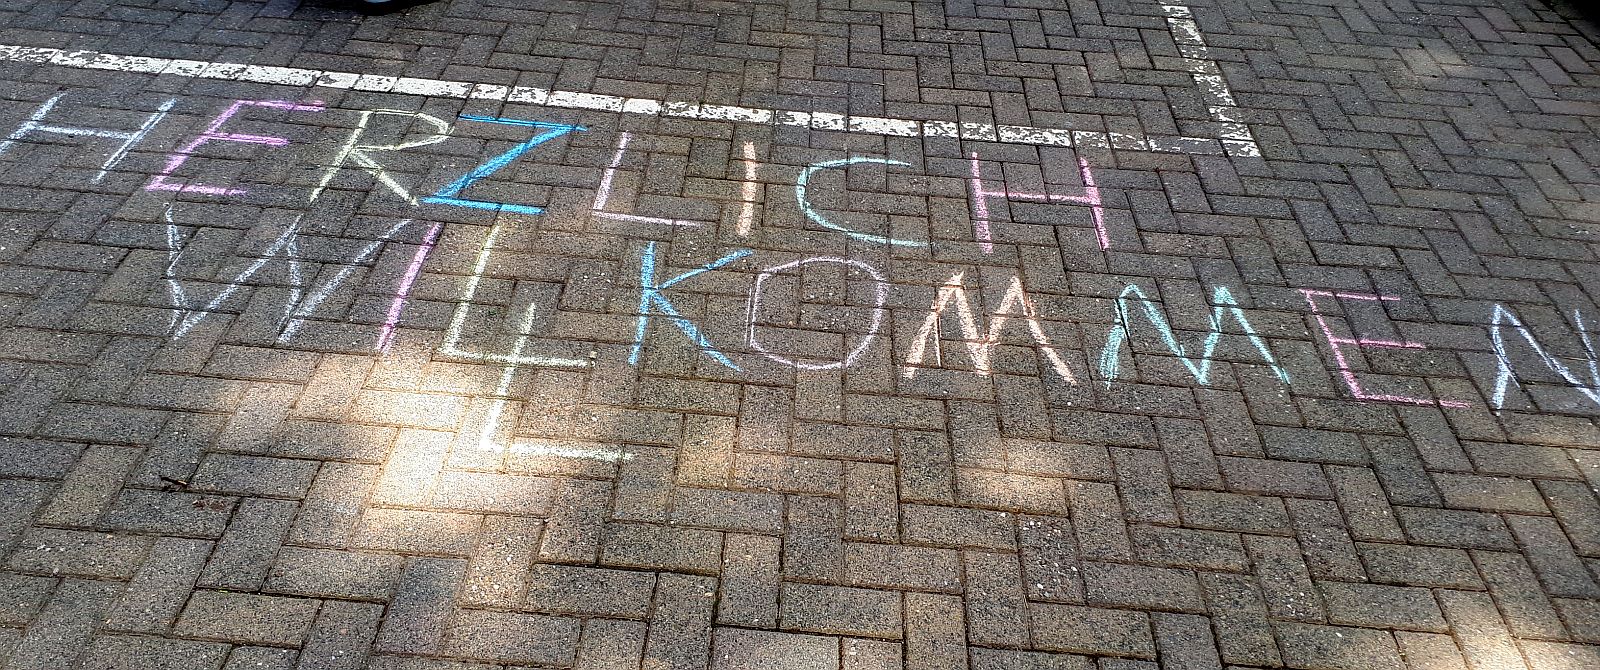 HERZLICH
WILLKOMMEN